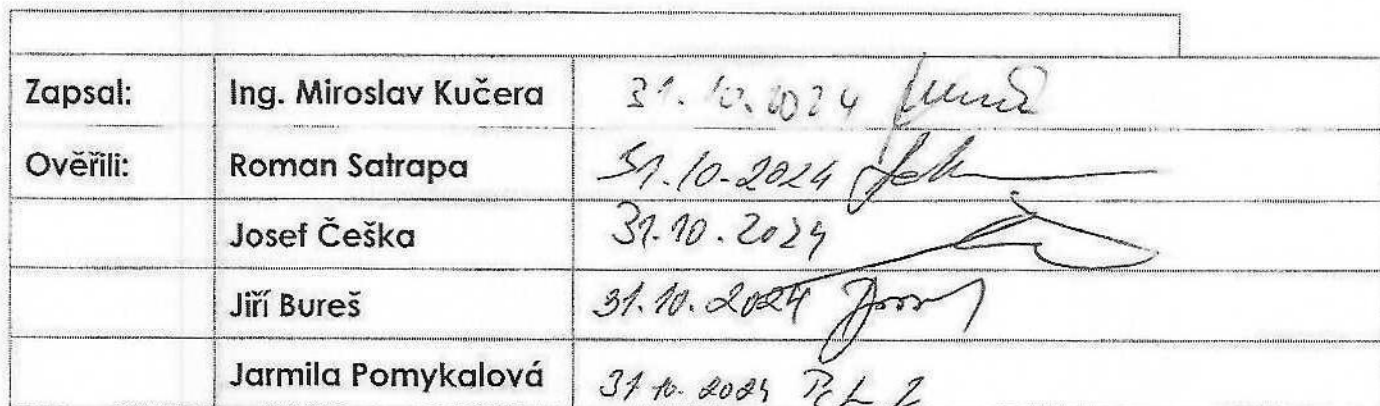 Zapsal: Ing. Miroslav Kučera 31.10.2024
Ověřili: Roman Satrapa 31.10-2024
Josef Češka 31.10.2024
Jiří Bureš 31.10.2024
Jarmila Pomykalová 31 10. 2024